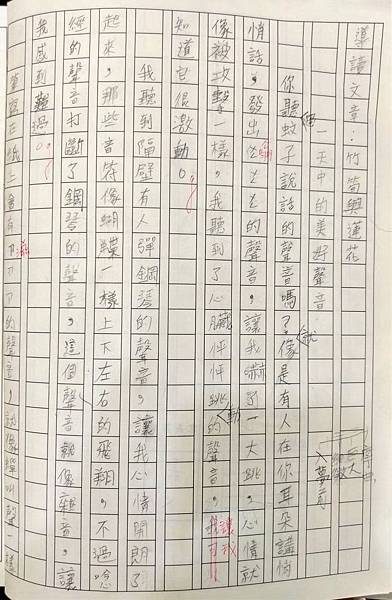 導讀文章：竹筍與蓮花
一天中的美好聲音
你聽蚊子說話的聲音嗎？像是有人在你耳朵講悄
悄話，發出ㄜㄜ的聲音，讓我嚇了一大跳，心情就
像被攻擊一樣，我聽到了心臟怦怦跳的聲音，
知道它很激動。
我聽到隔壁有人彈鋼琴的聲音，讓我心情開朗了
起來，那些音符像蝴蝶一樣上下左右的飛翔，不過唸
經的聲音打斷了鋼琴的聲音，這個聲音就像雜音，讓
我感到難過。
筆寫在紙上會有ㄗㄗㄗ的聲音，就像蟬叫聲一樣